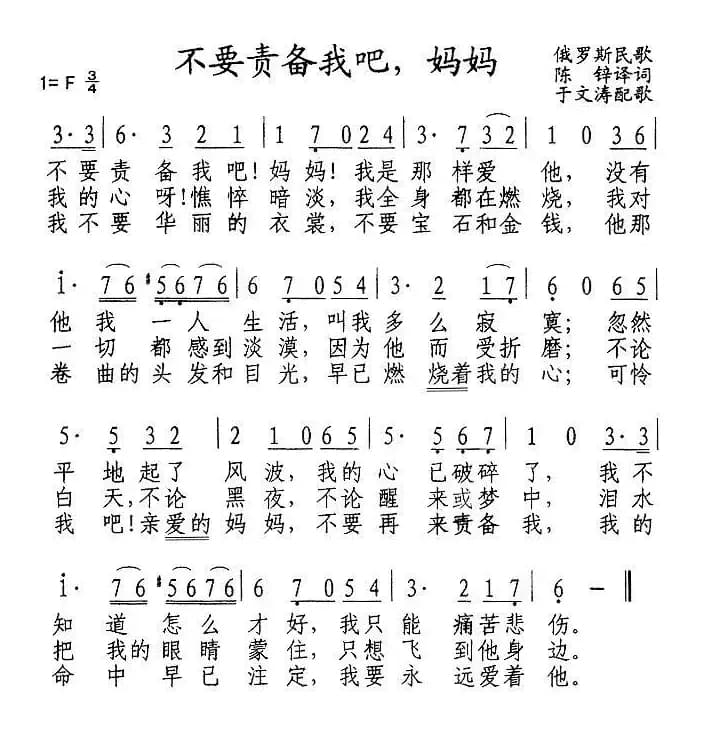 不要责备我吧，妈妈
1=F 3/4
俄罗斯民歌
陈 锌译词
于文涛配歌
3·3 | 6· 3 2 1 | 1 7 0 2 4 | 3· 7 3 2 | 1 0 3 6 |
不要责 备我吧！妈妈！我是那 样爱 他，没有
我的心 呀！憔悴暗淡，我全身 都在燃 烧，我对
我不要 华丽的衣裳，不要宝 石和金 钱，他那
i· 7 6 #5 6 7 6 | 6 7 0 5 4 | 3· 2 1 7 | 6 0 6 5 |
他 我 一 人 生 活，叫我多 么 寂 寞；忽然
一 切 都 感到淡 漠，因为他 而 受折 磨；不论
卷 曲的头 发和目 光，早已燃 烧着我的 心；可怜
5· 5 3 2 | 2 1 0 6 5 | 5· 5 6 7 | 1 0 3·3 |
平 地起了 风 波，我的心 已破碎 了，我不
白 天，不论 黑 夜，不论醒 来或梦 中，泪水
我 吧！亲爱的 妈 妈，不要再 来责备 我，我的
i· 7 6 #5 6 7 6 | 6 7 0 5 4 | 3· 2 1 7 | 6 – ‖
知 道 怎 么 才 好，我只能 痛苦悲 伤。
把 我的眼 睛 蒙 住，只想飞 到他身 边。
命 中 早 已 注 定，我要永 远爱着 他。